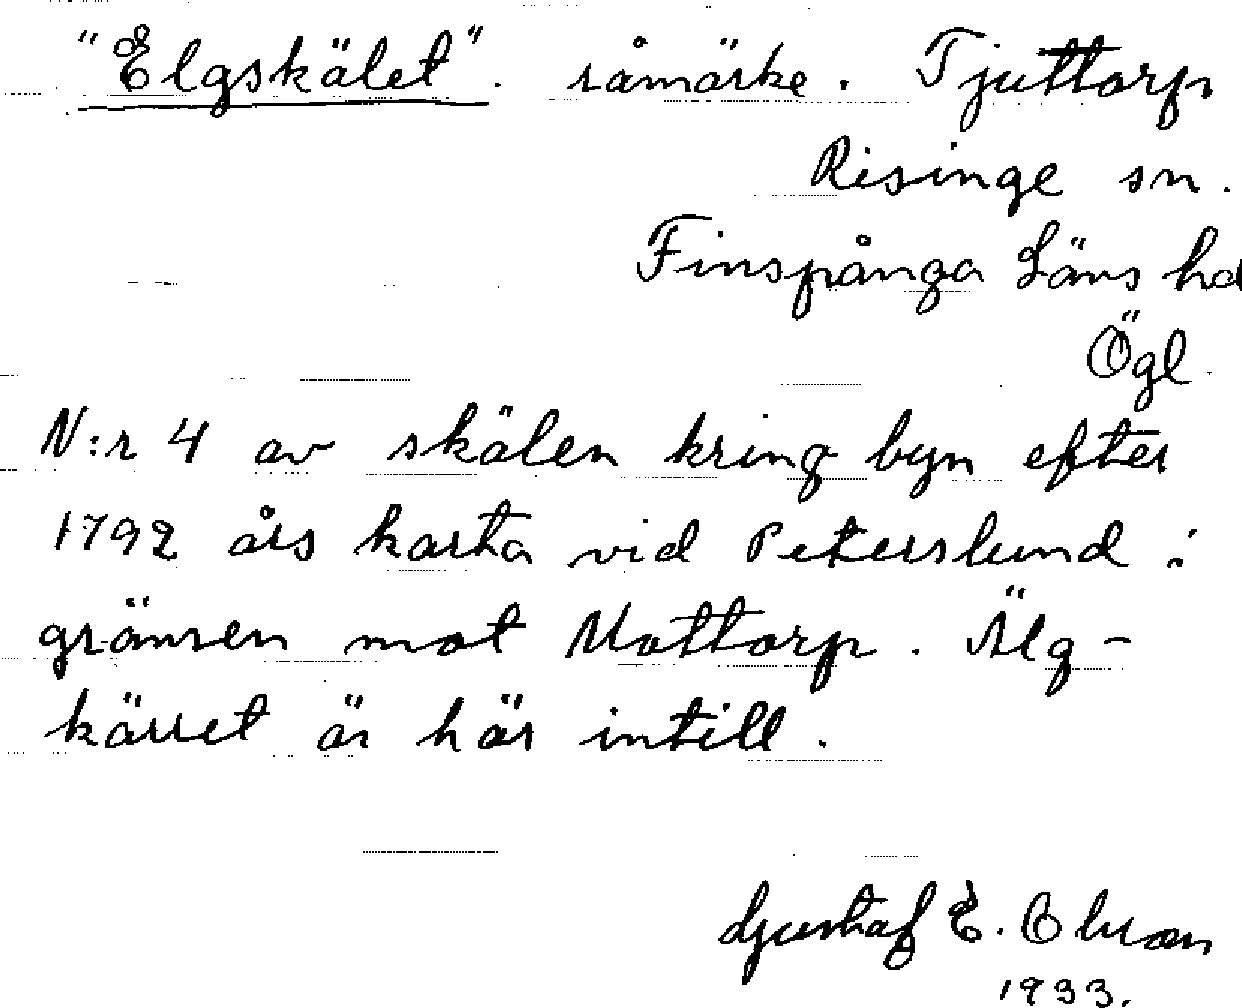 "Elgskälet". råmärke. Tjuttorp
Risinge sn.
Finspånga Läns hd
Ögl.
N:r 4 av skälen kring byn efter
1792 års karta vid Peterslund i
gränsen mot Mottorp. Älg-
kärret är här intill.
Gustaf E. Olsson
1933.